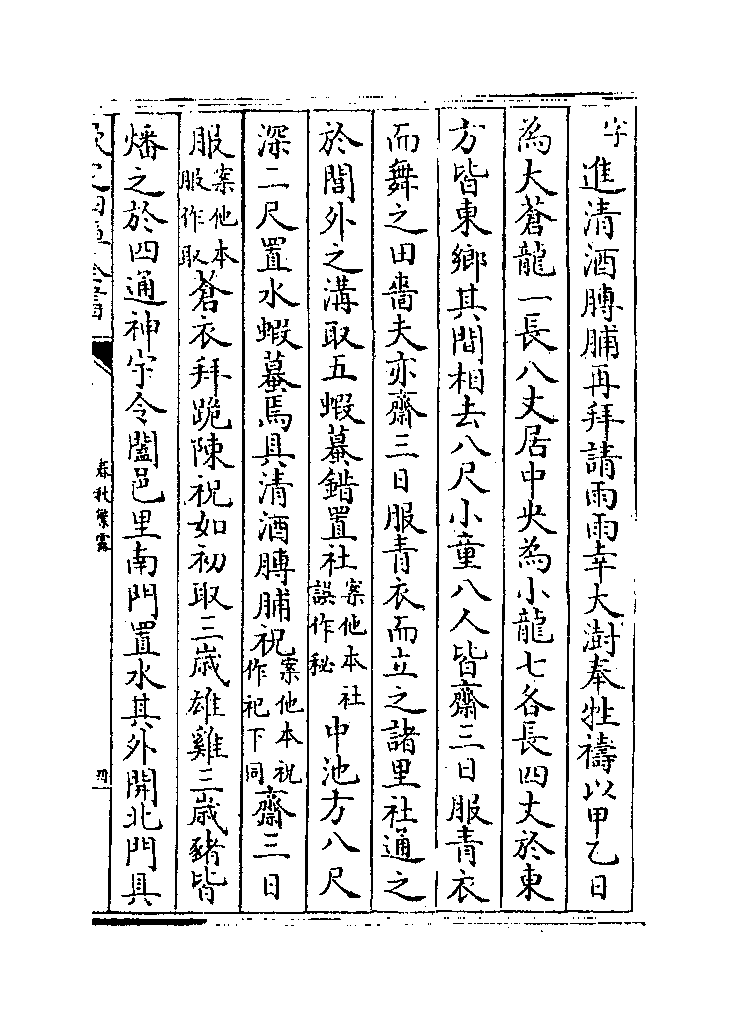 字進清酒膊脯再拜請雨雨幸大澍奉牲禱以甲乙日
為大蒼龍一長八丈居中央為小龍七各長四丈於東
方皆東鄉其間相去八尺小童八人皆齋三日服青衣
而舞之田嗇夫亦齋三日服青衣而立之諸里社通之
於閭外之溝取五蝦蟇錯置社案他本社誤作秘中池方八尺
深二尺置水蝦蟇焉具清酒膊脯祝案他本祝作祀下同齋三日
服案他本服作取蒼衣拜跪陳祝如初取三歲雄雞三歲豬皆
燔之於四通神宇令闔邑里南門置水其外開北門具
春秋繁露